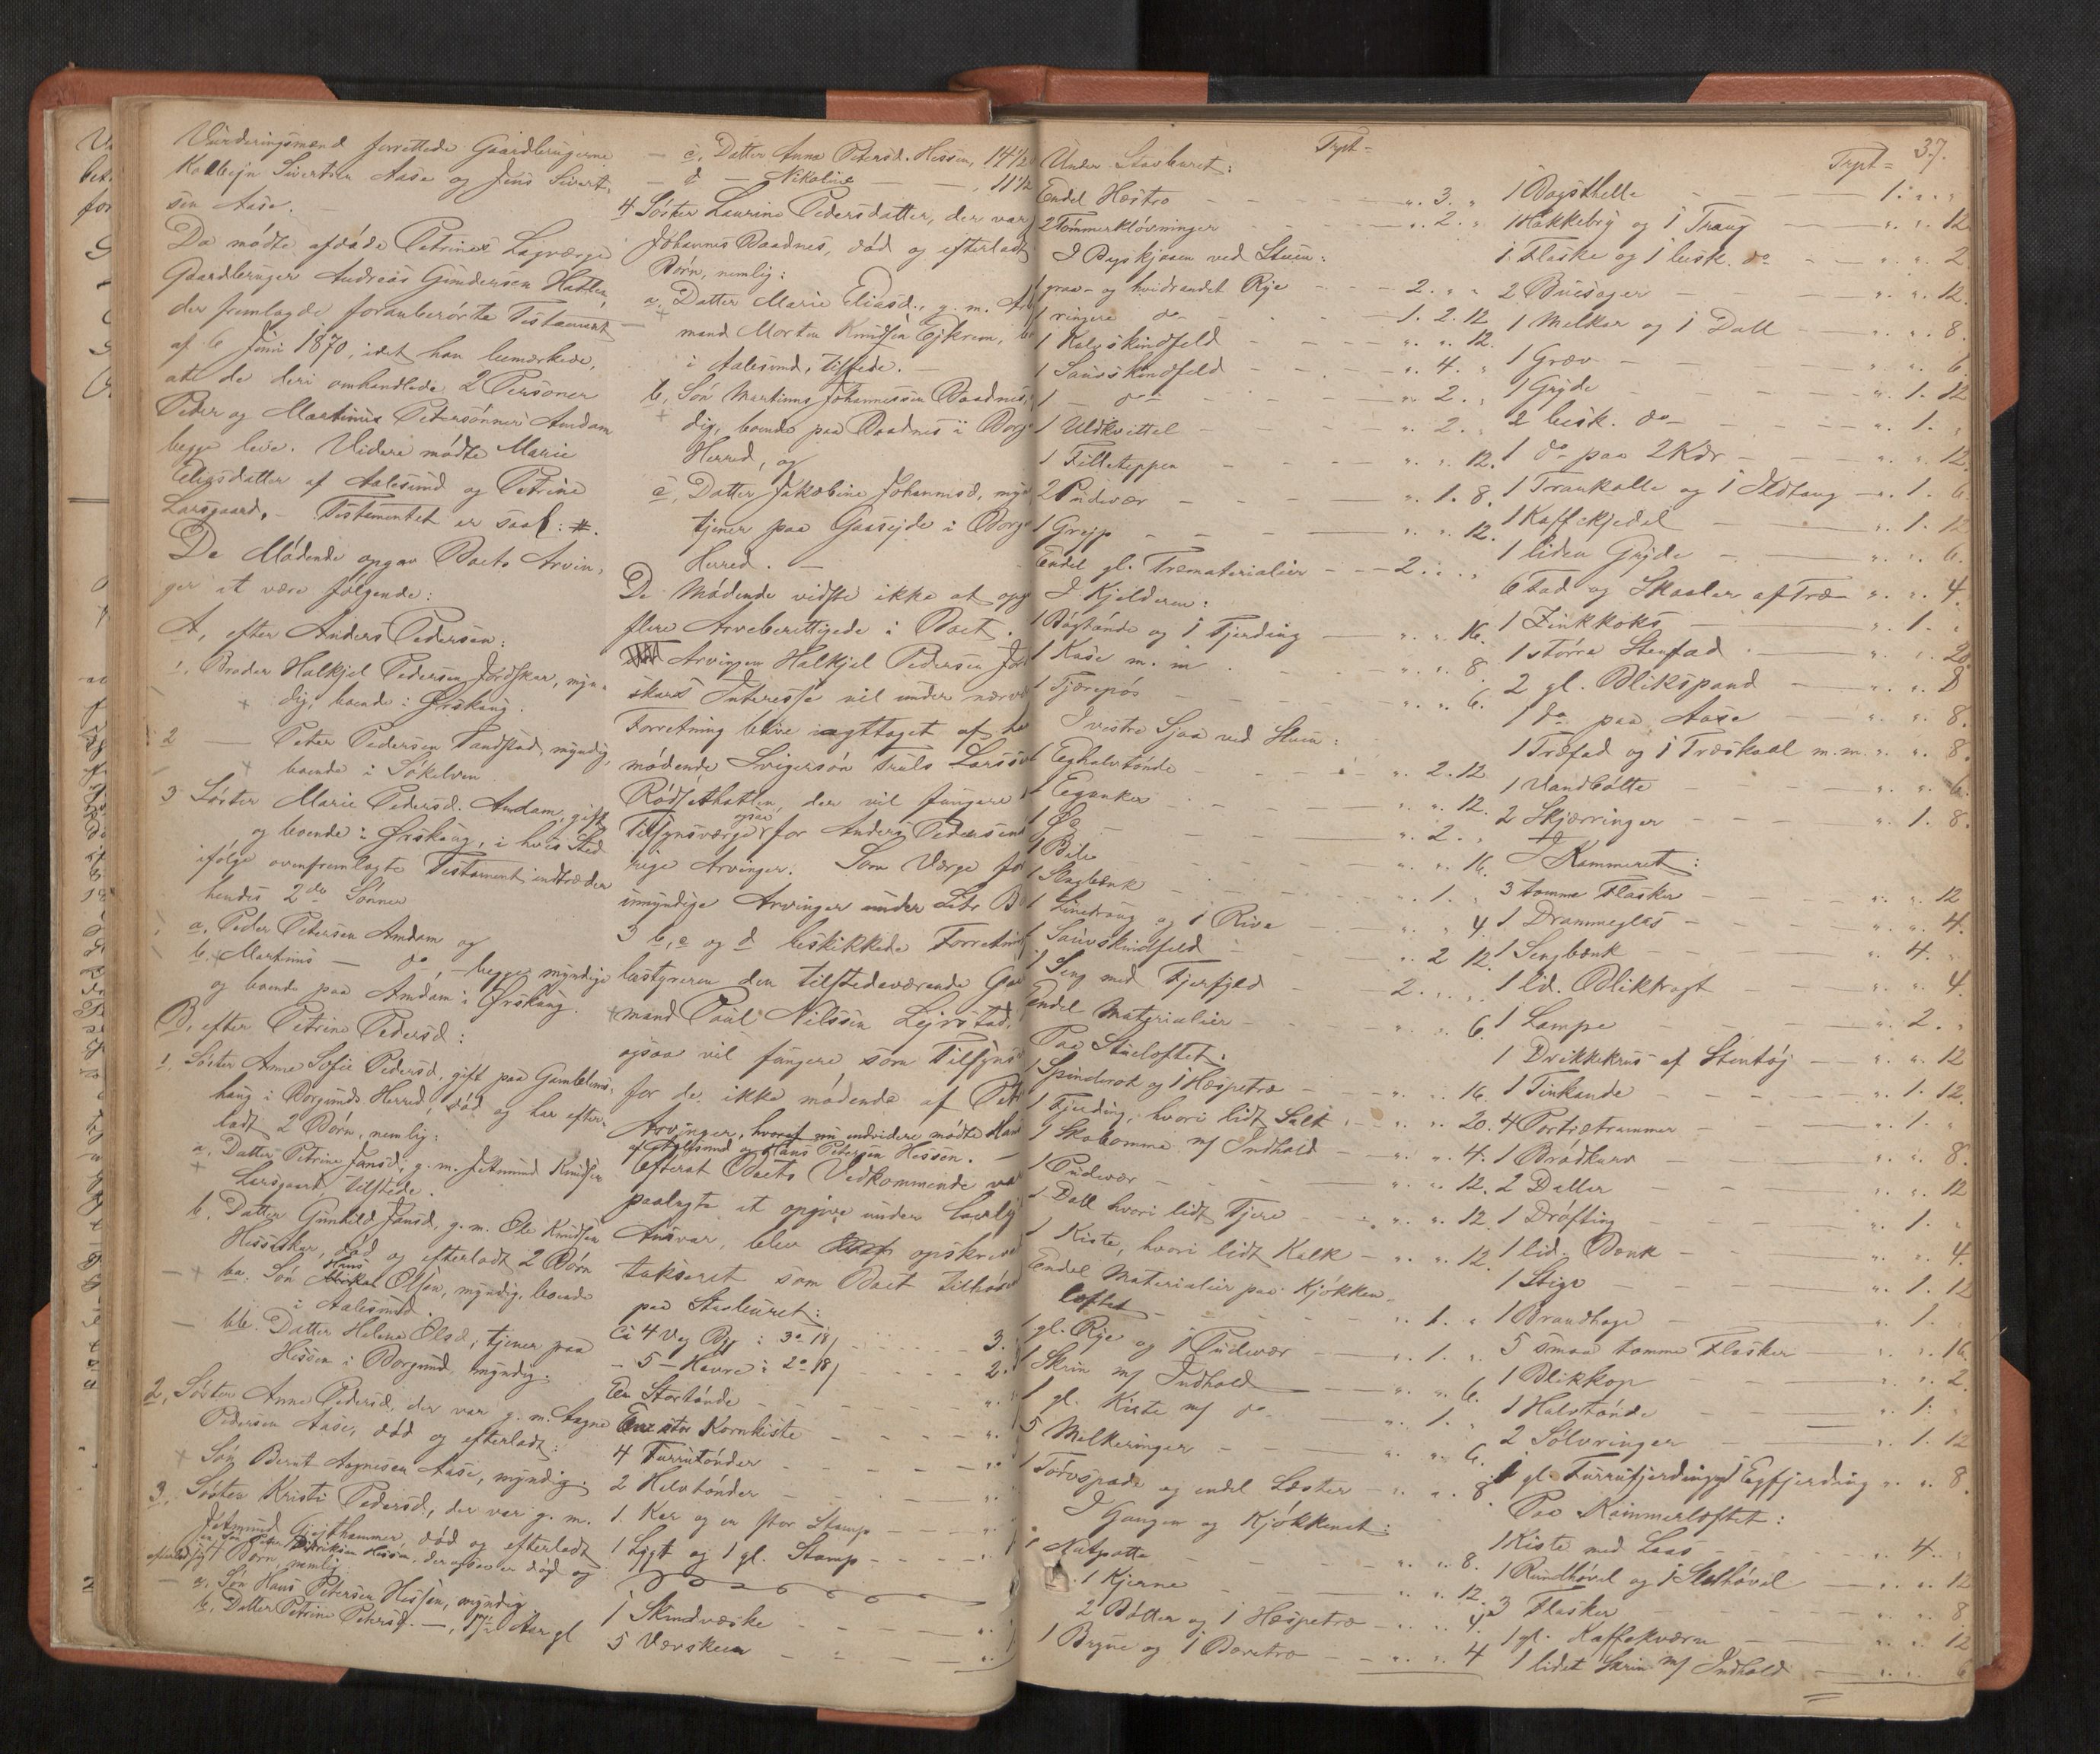 Vurderingsmænd forrettede Gaardbrugerne
Kolbejn Sivertsen Aase og Jens Sivert-
sen Aase.
Da mødte afdøde Petrines Lagværge
Gaardbruger Andreas Gundersen Hatlen,
der fremlagde foranberørte Testament
af 6 Juni 1870, idet han bemærkede,
at de deri omhandlede 2 Personer
Peder og Martinus Petersønner Amdam
begge leve. Videre mødte Marie
Eliasdatter af Aalesund og Petrine
Larsgaard. – Testamentet er saal: #.
De Mødende opgav Boets Arvin-
ger at være følgende:
A, efter Anders Pedersen:
1, Broder Halkjel Pedersen Jordskar, myn-
dig, boende i Ørskoug.
2 — Peter Pedersen Tandstad, myndig,
boende i Søkelven
3 Søster Marie Pedersd. Amdam, gift
og boende i Ørskoug, i hvis Sted
ifølge ovenfremlagte Testament indtræder
hendes 2de Sønner
a, Peder Petersen Amdam og
b, Martinus — do, – begge myndige
og boende paa Amdam i Ørskoug.
B, efter Petrine Pedersd:
1, Søster Anne Sofie Pedersd, gift paa Gamlems-
haug i Borgunds Herred, død og har efter-
ladt 2 Børn, nemlig:
a, Datter Petrine Jansd, g. m. Jetmund Knudsen
Larsgaard, tilstede.
b, Datter Gunhild Jansd, g. m. Ole Knudsen
Hesseskar, død og efterladt 2 Børn
ba. Søn Hans Olsen, myndig, boende
i Aalesund.
bb. Datter Helene Olsd, tjener paa
Hessen i Borgund, myndig.
2, Søster Anne Pedersd, der var g. m. Aagne
Pedersen Aase, død og efterladt:
Søn Bernt Aagnesen Aase, myndig.
3, Søster Kristi Pedersd, der var g. m.
Jetmund Gjejthammer, død og efterladt
en Søn Peter Hessen, der ogsaa er død og
efterladt Børn, nemlig
a, Søn Hans Petersen Hessen, myndig
b, Datter Petrine Petersd. —, 17½ Aar gl
— c, Datter Anne Petersd. Hessen, 14½
— d — Nikoline — — , 11½
4 Søster Laurine Pedersdatter, der var
Johannes Baadnes, død og efterladt
Børn, nemlig:
a, Datter Marie Eliasd., g. m. Ar
mand Morten Knudsen Ejkrem, bo
i Aalesund, tilstede. —
b, Søn Martinus Johannessen Baadnes,
dig, boende paa Baadnes i Borg
Herred, og
c, Datter Jakobine Johannesd, myn
tjener paa Gaasejde i Borg
Herred. —
De Mødende vidste ikke at opg
flere Arveberettigede i Boet.
Arvingen Halkjel Pedersen Jord
skars Interesse vil under nærv
Forretning blive iagttaget af h
mødende Svigersøn Truls Larss
Rødsethatlen, der vil fungere
Tilsynsværge ogsaa for Anders Pedersens
rige Arvinger. Som Værge for
umyndige Arvinger under Litr B
3 b, c og d beskikkede Forretnin
bestyreren den tilstedeværende Gaa
mand Poul Nilssen Lejrstad,
ogsaa vil fungere som Tilsyns
for de ikke mødende af Petr
Arvinger, hvoraf nu endvidere mødte Hans
af Aalesund og Hans Petersen Hessen. —
Efterat Boets Vedkommende var
paalagte at opgive under Eedelig
Ansvar, blev opskrevet
takseret som Boet tilhør
paa Stabburet:
Ci 4 Vog Byg i 3o 18/ 3.
– 5 – Havre i 2o 18/ 2.
En Stortønde
En stor Kornkiste
4 Furrutønder
2 Halvtønder
1. Kar og en stor Stamp
1 Lygt og 1 gl. Stamp
1 Skindvæske
5 Vævskeer
37.
Trpt= Trpt=
Under Stabburet:
Endel Hestro „ 3. „
2 Tømmerkløvninger „ 2. „
I Bagskjaaen ved Stuen:
1 graa- og hvidrandet Rye 2. „ „
1 ringere do 1. 2. 12
1 Kalvskindfeld „ „ 12.
1 Sauskindfeld „ 4. „
1 — do „ 2. „
1 Uldkvittel „ 2. „
1 Filleteppen „ „ 12.
2 Pudevær „ 1. 8.
1 Grejp „ „ 12.
Endel gl. Træmaterialier 2. „ „
I Kjelderen:
1 Bøgtønde og 1 Fjerding „ „ 16.
1 Kase m. m. „ „ 8
1 Tjærepøs „ „ 6.
I vestre Sjaa ved Stuen:
1 Eghalvtønde „ 2. 12
1 Eganker „ „ 12.
1 do „ 2. „
1 Bile „ „ 16.
1 Slagbænk „ 1. „
1 Linetroug og 1 Rive „ „ 4
1 Sauskindfeld „ 2 12.
1 Seng med Fjerfyld 2. „ „
Endel Materialier „ „ 6.
Paa Stueloftet:
1 Spinderok og 1 Hæspetræ „ „ 16.
1 Fjerding, hvori lidt Salt „ „ 20.
1 Skotomme m/ Indhold „ „ 4.
1 Pudevær „ „ 12.
1 Dall hvori lidt Tjere „ „ 12.
1 Kiste, hvori lidt Kalk „ „ 12.
Endel Materialier paa Kjøkken-
loftet „ 1. „
1 gl. Rye og 1 Pudevær „ 1. „
1 Skrin m/ Indhold „ „ 6.
1 gl. Kiste m/ do „ 1. „
5 Melkeringer „ „ 6.
1 Torvspade og endel Læster „ „ 8.
I Gangen og Kjøkkenet:
1 Natpotte „ „ 8.
1 Kjerne „ „ 12.
2 Bøtter og 1 Hæspetræ „ „ 4.
1 Bryne og 1 Bæretræ „ „ 4
1 Bagsthelle 1. „ „
1 Hakkebry og 1 Traug „ „ 12
1 Flaske og 1 besk. do „ „ 2
2 Buesager „ „ 12.
1 Melkar og 1 Dall „ „ 8.
1 Græv „ „ 6.
1 Gryde „ 1. 12
2 besk. do „ 1. „
1 do paa 2 Kdr „ „ 12.
1 Trankolle og 1 Ildtang „ 1. 6.
1 Kaffekjedel „ 1. 12
1 liden Gryde „ „ 6.
6 Fad og Skaaler af Træ „ „ 4.
1 Zinkkoks „ 1. „
1 større Stenfad „ „ 20
2 gl. Blikspand „ „ 8
1 do paa Aase „ „ 8.
1 Træfad og 1 Træskaal m. m. „ „ 8.
1 Vandbøtte „ „ 6.
2 Skjærringer „ 1. 8.
I Kammeret:
3 tomme Flasker „ „ 12
1 Drammeglas „ „ 4.
1 Sengbænk „ 4. „
1 lid. Bliktragt „ „ 4.
1 Lampe „ 2. „
1 Drikkekrus af Stentøj „ „ 12
1 Tinkande „ 1. 12.
4 Portrætrammer „ 1. „
1 Brødkurv „ „ 8.
2 Daller „ „ 12
1 Drøfting „ 1. „
1 lid. Bænk „ „ 4.
1 Stige „ 1. 12
1 Brandhage „ 1. „
5 smaa tomme Flasker „ „ 16.
1 Blikkop „ „ 2.
1 Halvtønde „ 1. „
2 Sølvringer „ 1. 12
1 gl. Furrufjerding og 1 Egfjerding „ „ 8.
Paa Kammerloftet:
1 Kiste med Laas „ 4. „
1 Rundhøvl og 1 Sletthøvel „ „ 12
3 Flasker „ „ 8
1 gl. Kaffekværn „ „ 12
1 lidet Skrin m/ Indhold „ „ 6